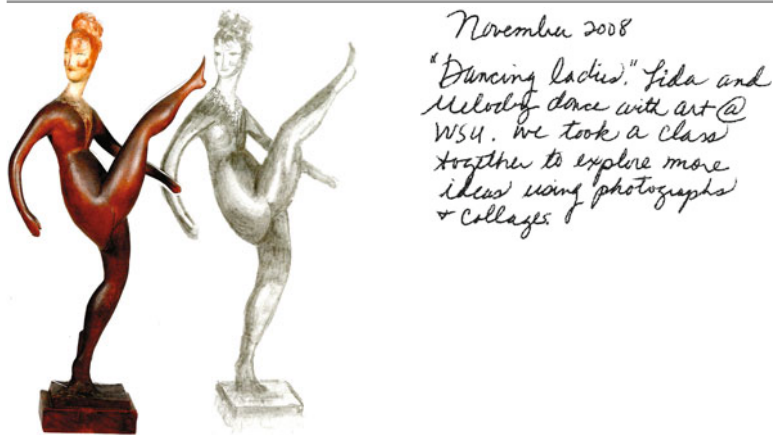 November 2008
"Dancing ladies." Lida and
Melody dance with art @
WSU. We took a class
together to explore more
ideas using photographs
+ collages.